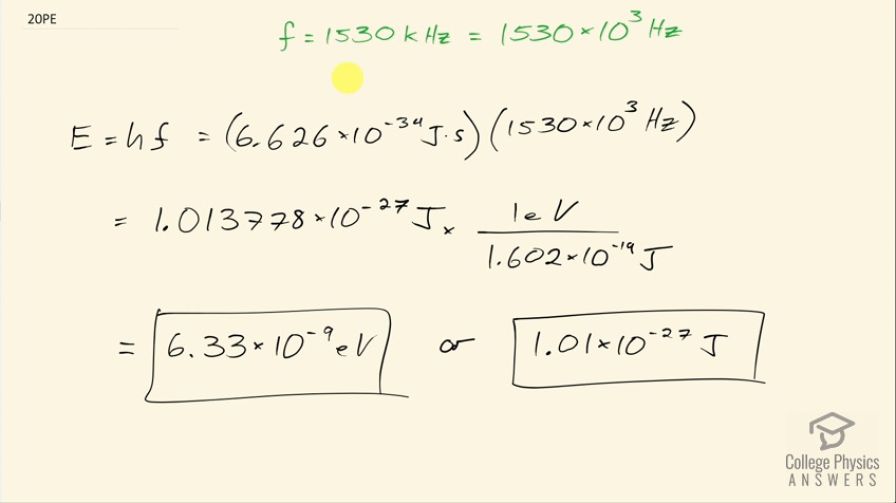 20PE
f = 1530 kHz = 1530 × 10³ Hz
E = hf = (6.626 × 10⁻³⁴ J·s)(1530 × 10³ Hz)
= 1.013778 × 10⁻²⁷ J × 1eV / 1.602 × 10⁻¹⁹ J
= 6.33 × 10⁻⁹ eV or 1.01 × 10⁻²⁷ J
College Physics
ANSWERS